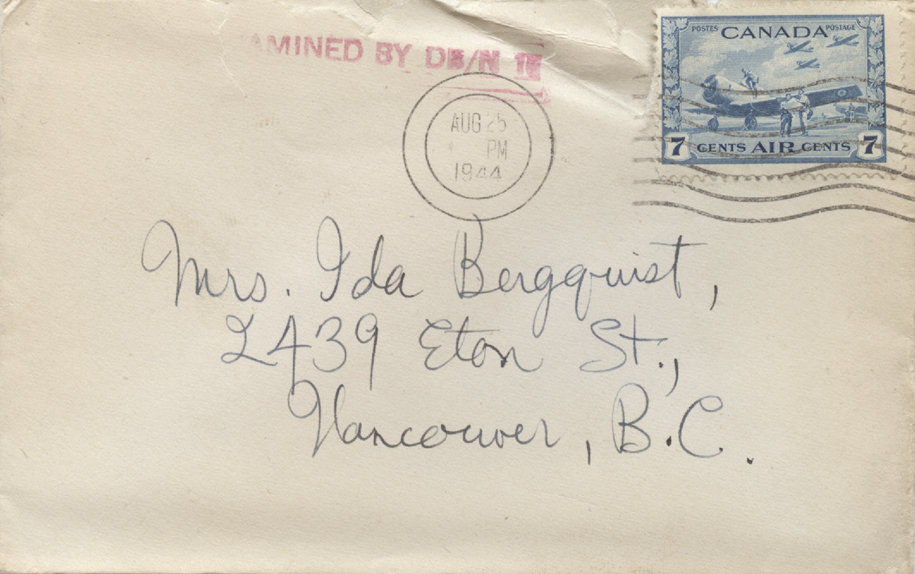 AMINED BY DB/N 1
POSTES CANADA POSTAGE
AUG 25
PM
1944
7 CENTS AIR CENTS 7
Mrs. Ida Bergquist,
2439 Eton St.,
Vancouver, B.C.